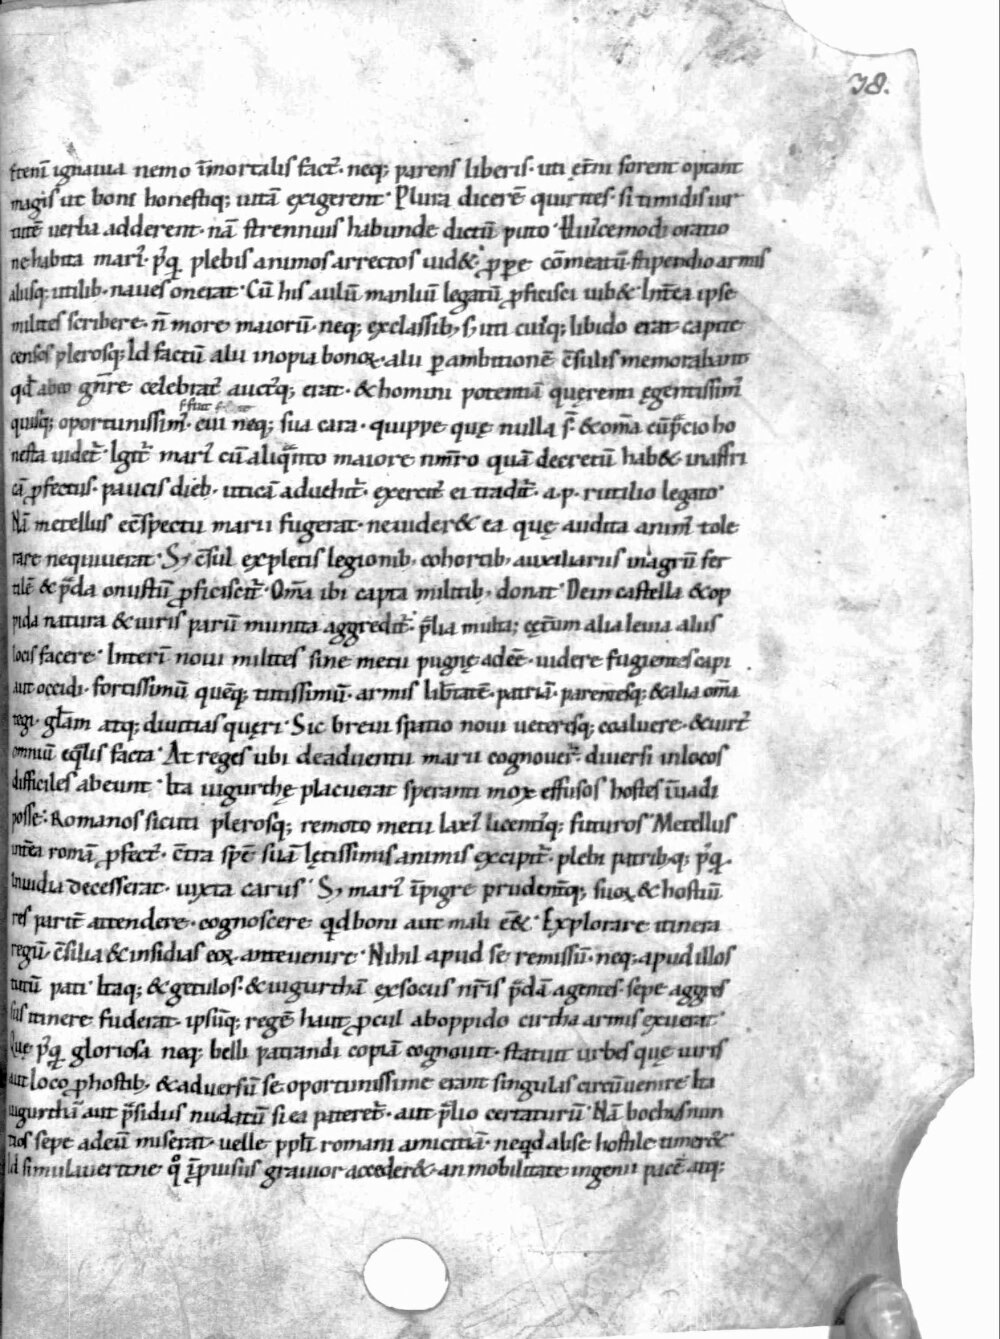 38.
etenī ignauia nemo īmortalis fact᷒. neq; parens liberis. uti ęt̄ni forent optauit
magis ut boni honestiq; uitā exigerent. Plura dicerē quirites. si timidis uir
tutē uerba adderent. nā strennuis habunde dictū puto. Huiꝰcemodi oratio
ne habita mariꝰ. pꝰq̄ plebis animos arrectos uid&. ꝓpere cōmeatū. stipendio armis
aliisq; utilib. naues onerat. Cū his aulū manliū legatū ꝓficisci iub&. Int̄ea ipse
milites scribere. n̄ more maiorū. neq; exclassib, s; uti cuiꝰq; libido erat capite
censos plerosq; Id factū alii inopia bonoꝝ. alii p ambitionē c̄sulis memorabant
qd̄ abeo gn̄re celebratꝰ auctꝰq; erat. & homini potentiā quęrenti ęgentissimꝰ
quisq; oportunissimꝰ. cui neq; sua cara. quippe quę nulla s̄. & om̄a cū p̄cio ho
nesta uidēt᷒. Igit᷒ mariꝰ cū aliq̄nto maiore num̄ro quā decretū hab&. inafri
cā ꝓfectus. paucis dieb, uticā aduehit᷒. exercitꝰ ei tradit᷒. a. p. rutilio legato.
Nā metellus c̄spectū marii fugerat. ne uider& ea quę audita animꝰ tole
rare nequiuerat. S; c̄sul expletis legionib, cohortib, auxiliariis inagrū fer
tilē & p̄da onustū ꝓficiscit᷒. Om̄a ibi capta militib, donat. Dein castella & op
pida natura & uiris parū munita aggredit᷒. p̄lia multa; cęt̄um alia leuia aliis
locis facere. Interī noui milites sine metu pugnę adeē. uidere fugientes capi
aut occidi. fortissimū quēq; tutissimū. armis lib̄tatē. patriā. parentesq; & alia om̄a
tegi. gl̄am atq; diuitias queri. Sic breui spatio noui ueteresq; coaluere. & uirtꝰ
omniū eq̄lis facta. At reges ubi deaduentu marii cognouer̄. diuersi inlocos
difficiles abeunt. Ita iugurthę placuerat speranti mox effusos hostes īuadi
posse. Romanos sicuti plerosq; remoto metu laxiꝰ licentiꝰq; futuros. Metellus
int̄ea romā ꝓfectꝰ. c̄tra spē suā lętissimis animis excipit᷒. plebi patribꝰq; pꝰq̄
inuidia decesserat. iuxta carus. S; mariꝰ īpigre prudent̄q; suoꝝ & hostiū
res parit̄ attendere. cognoscere qd boni aut mali eē&. Explorare itinera
regū. c̄silia & insidias eoꝝ anteuenire. Nihil apud se remissū. neq; apud illos
tutū pati. Itaq; & getulos. & iugurthā exsociis nr̄is p̄dā agentes. sepe aggres
sus itinere fuderat. ipsūq; regē haut ꝓcul aboppido cirtha armis exuerat.
Quę pꝰq̄ gloriosa neq; belli patrandi copiā cognouit. statuit urbes quę uiris
aut loco ꝓ hostib, & aduersū se oportunissime erant singulas circūuenire. Ita
iugurthā aut p̄sidiis nudatū si ea pateret᷒. aut p̄lio certaturū. Nā bochus nun
tios sepe adeū miserat. uelle ppl̄i romani amicitiā. neqd abse hostile timer&
Id simulauertine qͦ īprouisus grauior acceder& an mobilitate ingenii pacē atq;